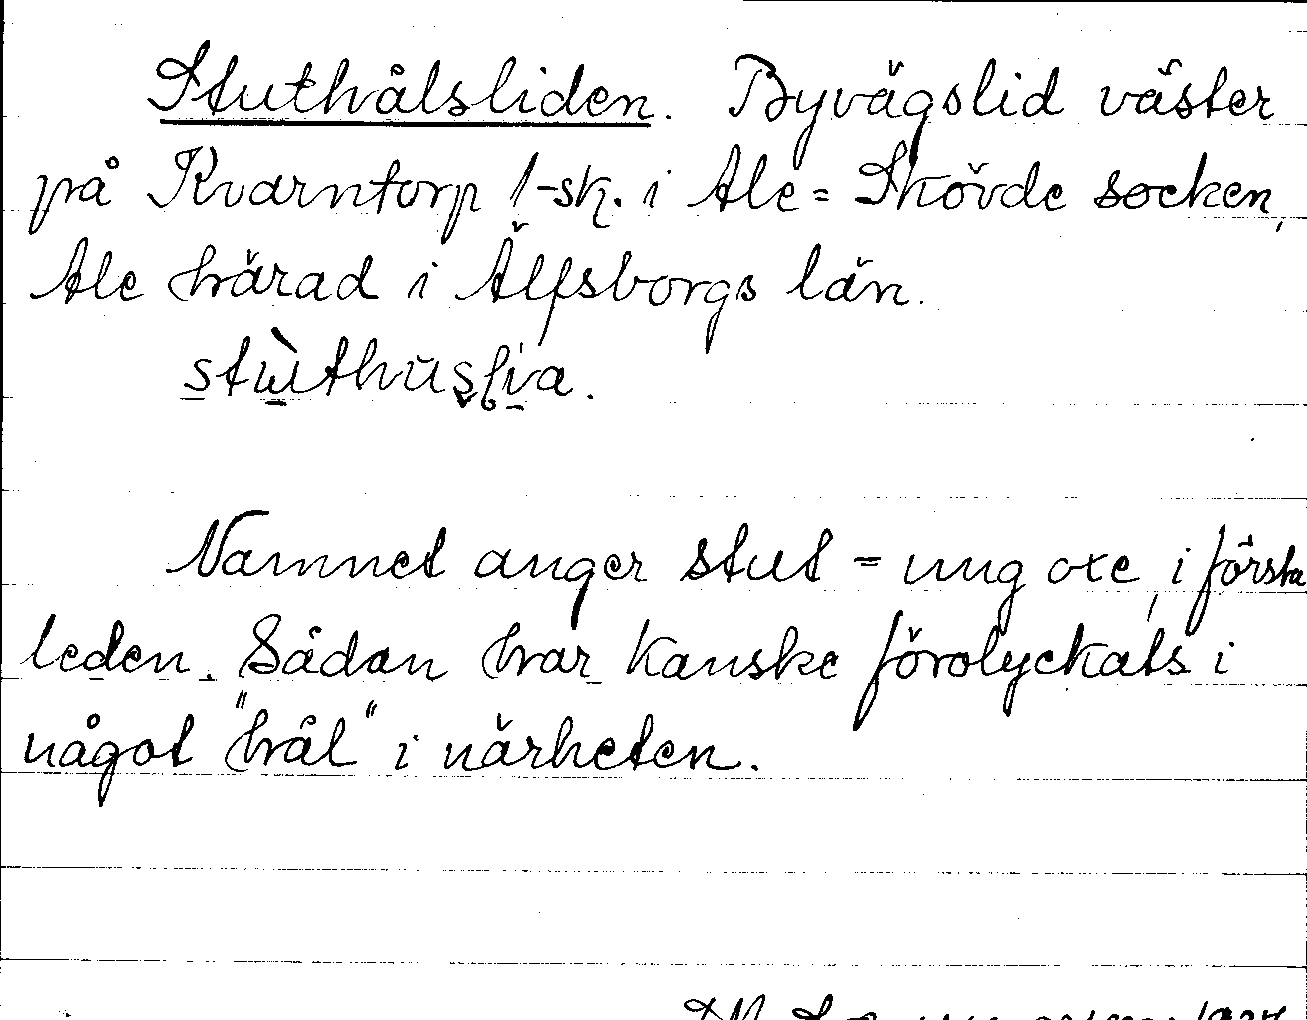 Stuthålsliden. Byvägslid väster
på Kvarntorp 1-sk. i Ale=Skövde socken,
Ale härad i Älfsborgs län.
Namnet anger stut = ung oxe, i första
leden. Sådan har kanske förolyckats i
något "hål" i närheten.